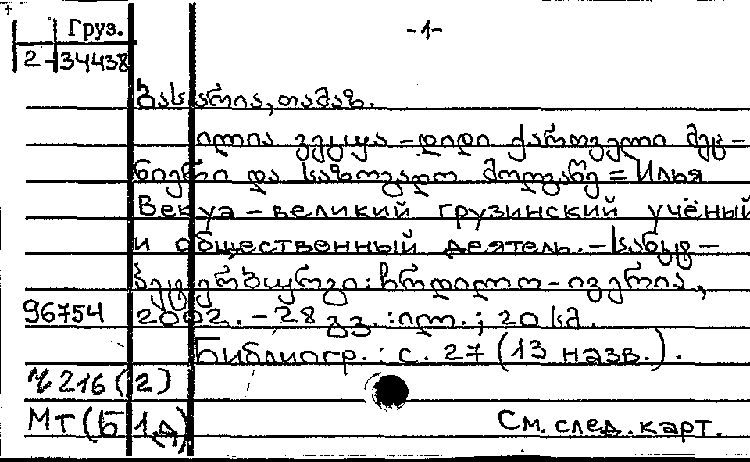 Груз.
-1-
2-34438
ბასარია, თამაზ.
ილია ვეკუა – დიდი ქართველი მეც-
ნიერი და საზოგადო მოღვაწე = Илья
Векуа – великий грузинский учёный
и общественный деятель. – სანკტ-
პეტერბურგი: ჩრდილო-ივერია,
96754 2002. – 28 გვ. : ილ. ; 20 სმ.
Библиогр. : с. 27 (13 назв.).
Ч216(2)
МТ(Б1д)
См. след. карт.